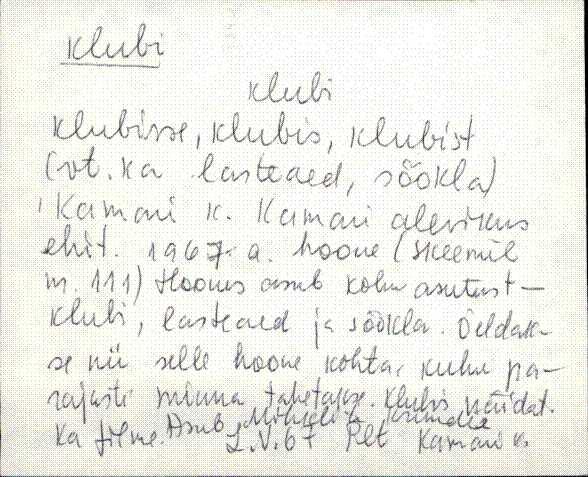 Klubi
Klubi
Klubisse, Klubis, Klubist
(vt. ka lasteaed, söökla)
Kamari k. Kamari alevikus
ehit. 1967. a. hoone (skeemil
nr. 111) Hoones asub kolm asutust -
Klubi, lasteaed ja söökla. Öeldak-
se nii selle hoone kohta, kuhu pa-
rajasti minna tahetakse. Klubis näidat.
ka filme. Asub
Plt Kamari k.